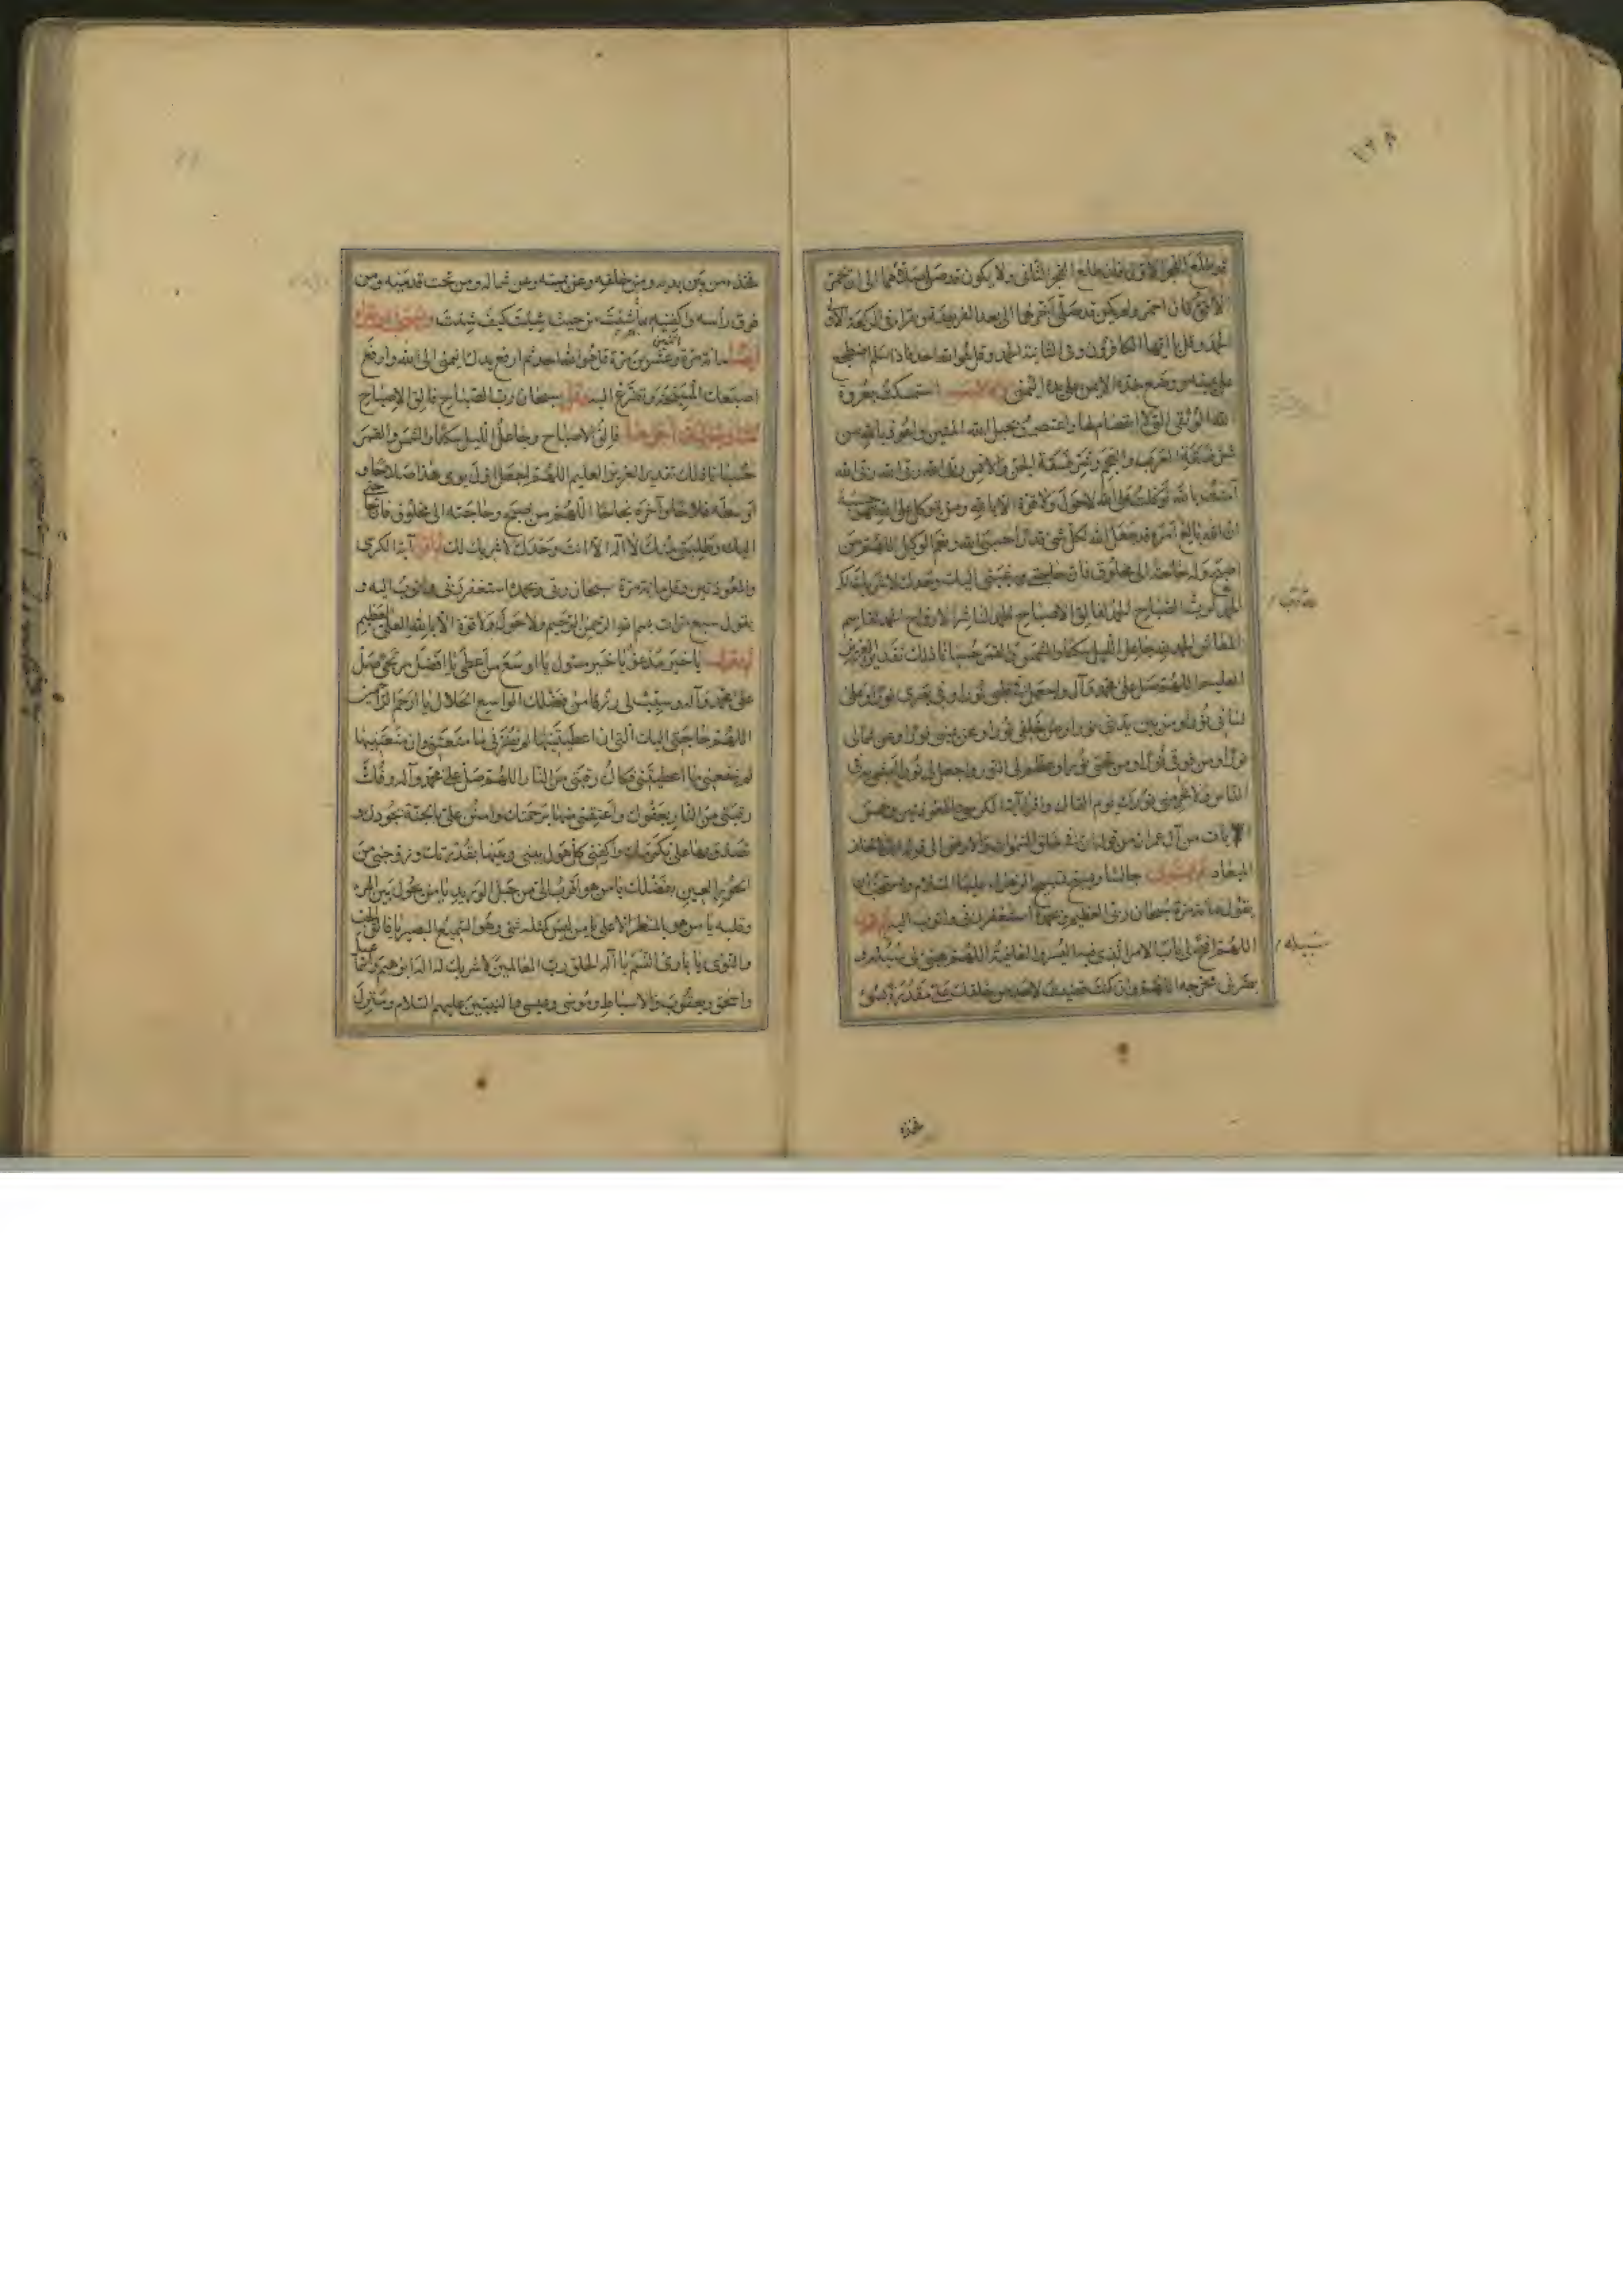 ١٣٨
قد طلع الفجر الأول فإن طلع الفجر الثاني ولا يكون قد صلى صلاهما الى ان يحمر
الأفق فان احمر ولم يكن قد صلى أخرهما الى بعد الفريضة ويقرا في الركعة الاولى
الحمد وقل يا ايها الكافرون وفي الثانية الحمد وقل هو الله احد فاذا سلم اضطجع
على يمينه ووضع خده الايمن على يده اليمنى استمسكت بعروة
الله الوثقى التي لا انفصام لها واعتصمت بحبل الله المتين واعوذ بالله من
شر فسقة العرب والعجم ومن شر فسقة الجن والانس ربي الله ربي الله
آمنت بالله توكلت على الله لا حول ولا قوة الا بالله ومن يتوكل على الله فهو حسبه
ان الله بالغ امره قد جعل الله لكل شئ قدرا حسبي الله ونعم الوكيل اللهم من
اصبح وله حاجة الى مخلوق فان حاجتي ورغبتي اليك وحدك لا شريك لك
الحمد لرب الصباح الحمد لفالق الاصباح الحمد لناشر الارواح الحمد لقاسم
المعاش الحمد لله جاعل الليل سكنا والشمس والقمر حسبانا ذلك تقدير العزيز
العليم اللهم صل على محمد وآله واجعل في قلبي نورا وفي بصري نورا وعلى
لساني نورا ومن بين يدي نورا ومن خلفي نورا وعن يميني نورا وعن شمالي
نورا ومن فوقي نورا ومن تحتي نورا وعظم لي النور واجعل لي نورا امشي به في
الناس ولا تحرمني نورك يوم القاك واقرا آية الكرسي والمعوذتين وخمس
الآيات من آل عمران من قوله ان في خلق السموات والارض الى قوله انك لا تخلف
الميعاد جالسا ويسبح تسبيح الزهراء عليها السلام ويستحب ان
يقول مائة مرة سبحان ربي العظيم وبحمده استغفر الله ربي واتوب اليه
اللهم افتح لي باب الامر الذي فيه اليسر والعافية اللهم هيئ لي سبيله و
بصرني مخرجه اللهم وان كنت قضيت لاحد من خلقك على مقدرة بسوء
سبيله
فخذه
فخذه من بين يديه ومن خلفه وعن يمينه وعن شماله ومن تحت قدميه ومن
فوق رأسه واكفنيه بما شئت من حيث شئت كيف شئت ويستحب ان يقرأ
ايضا مائة مرة وعشرين مرة قل هو الله احد ثم ارفع يدك اليمنى الى الله وارفع
اصبعك المسبحة وتضرع اليه وقل سبحان رب الصباح فالق الاصباح
فالق الاصباح وجاعل الليل سكنا والشمس والقمر
حسبانا ذلك تقدير العزيز العليم اللهم اجعل اول يومي هذا صلاحا و
اوسطه فلاحا وآخره نجاحا اللهم من اصبح وحاجته الى مخلوق فان حاجتي
اليك وطلبتي منك لا اله الا انت وحدك لا شريك لك آية الكرسي
والمعوذتين وقل مائة مرة سبحان ربي وبحمده استغفر ربي واتوب اليه و
يقول سبع مرات بسم الله الرحمن الرحيم ولا حول ولا قوة الا بالله العلي العظيم
يا خير مدعو يا خير مسئول يا اوسع من اعطى يا افضل مرتجى صل
على محمد وآله وسبب لي رزقا من فضلك الواسع الحلال يا ارحم الراحمين
اللهم حاجتي اليك التي ان اعطيتنيها لم يضرني ما منعتني وان منعتنيها
لم ينفعني ما اعطيتني فكاك رقبتي من النار اللهم صل على محمد وآله وفك
رقبتي من النار بعفوك واعتقني منها برحمتك وامنن علي بالجنة بجودك و
تصدق بها علي بكرمك واكفني كل هول بيني وبينها بقدرتك وزوجني من
الحور العين بفضلك يا من هو اقرب الي من حبل الوريد يا من يحول بين المرء
وقلبه يا من هو بالمنظر الاعلى يا من ليس كمثله شئ وهو السميع البصير يا فالق الحب
والنوى يا بارئ النسم يا آله الخلق رب العالمين لا شريك له اله ابراهيم واسماعيل
واسحق ويعقوب والاسباط وموسى وعيسى والنبيين عليهم السلام ومنزل